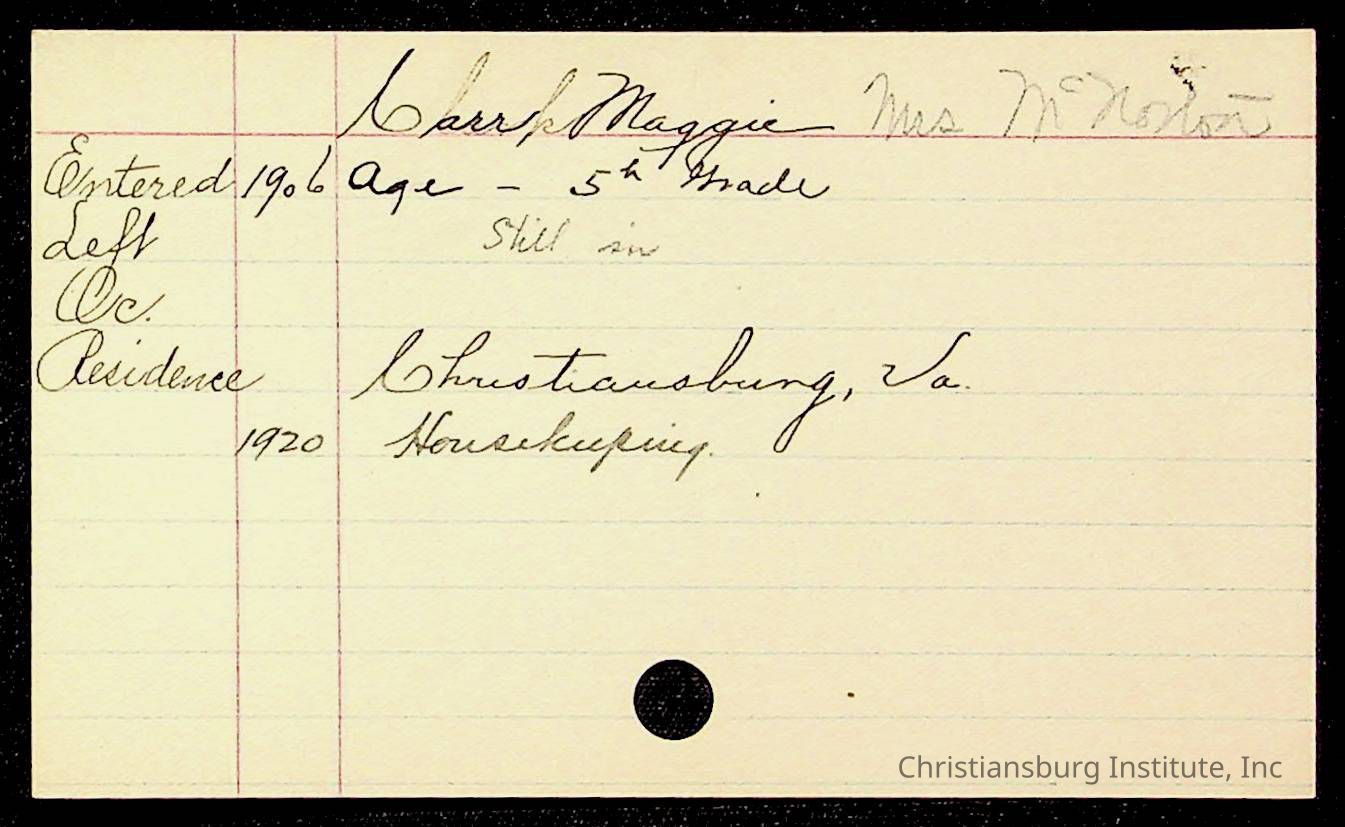 Maggie Mrs
Entered 1906 Age - 5th Grade
Left Still in
Oc.
Residence Christiansburg, Va.
1920 Housekeeping.
Christiansburg Institute, Inc